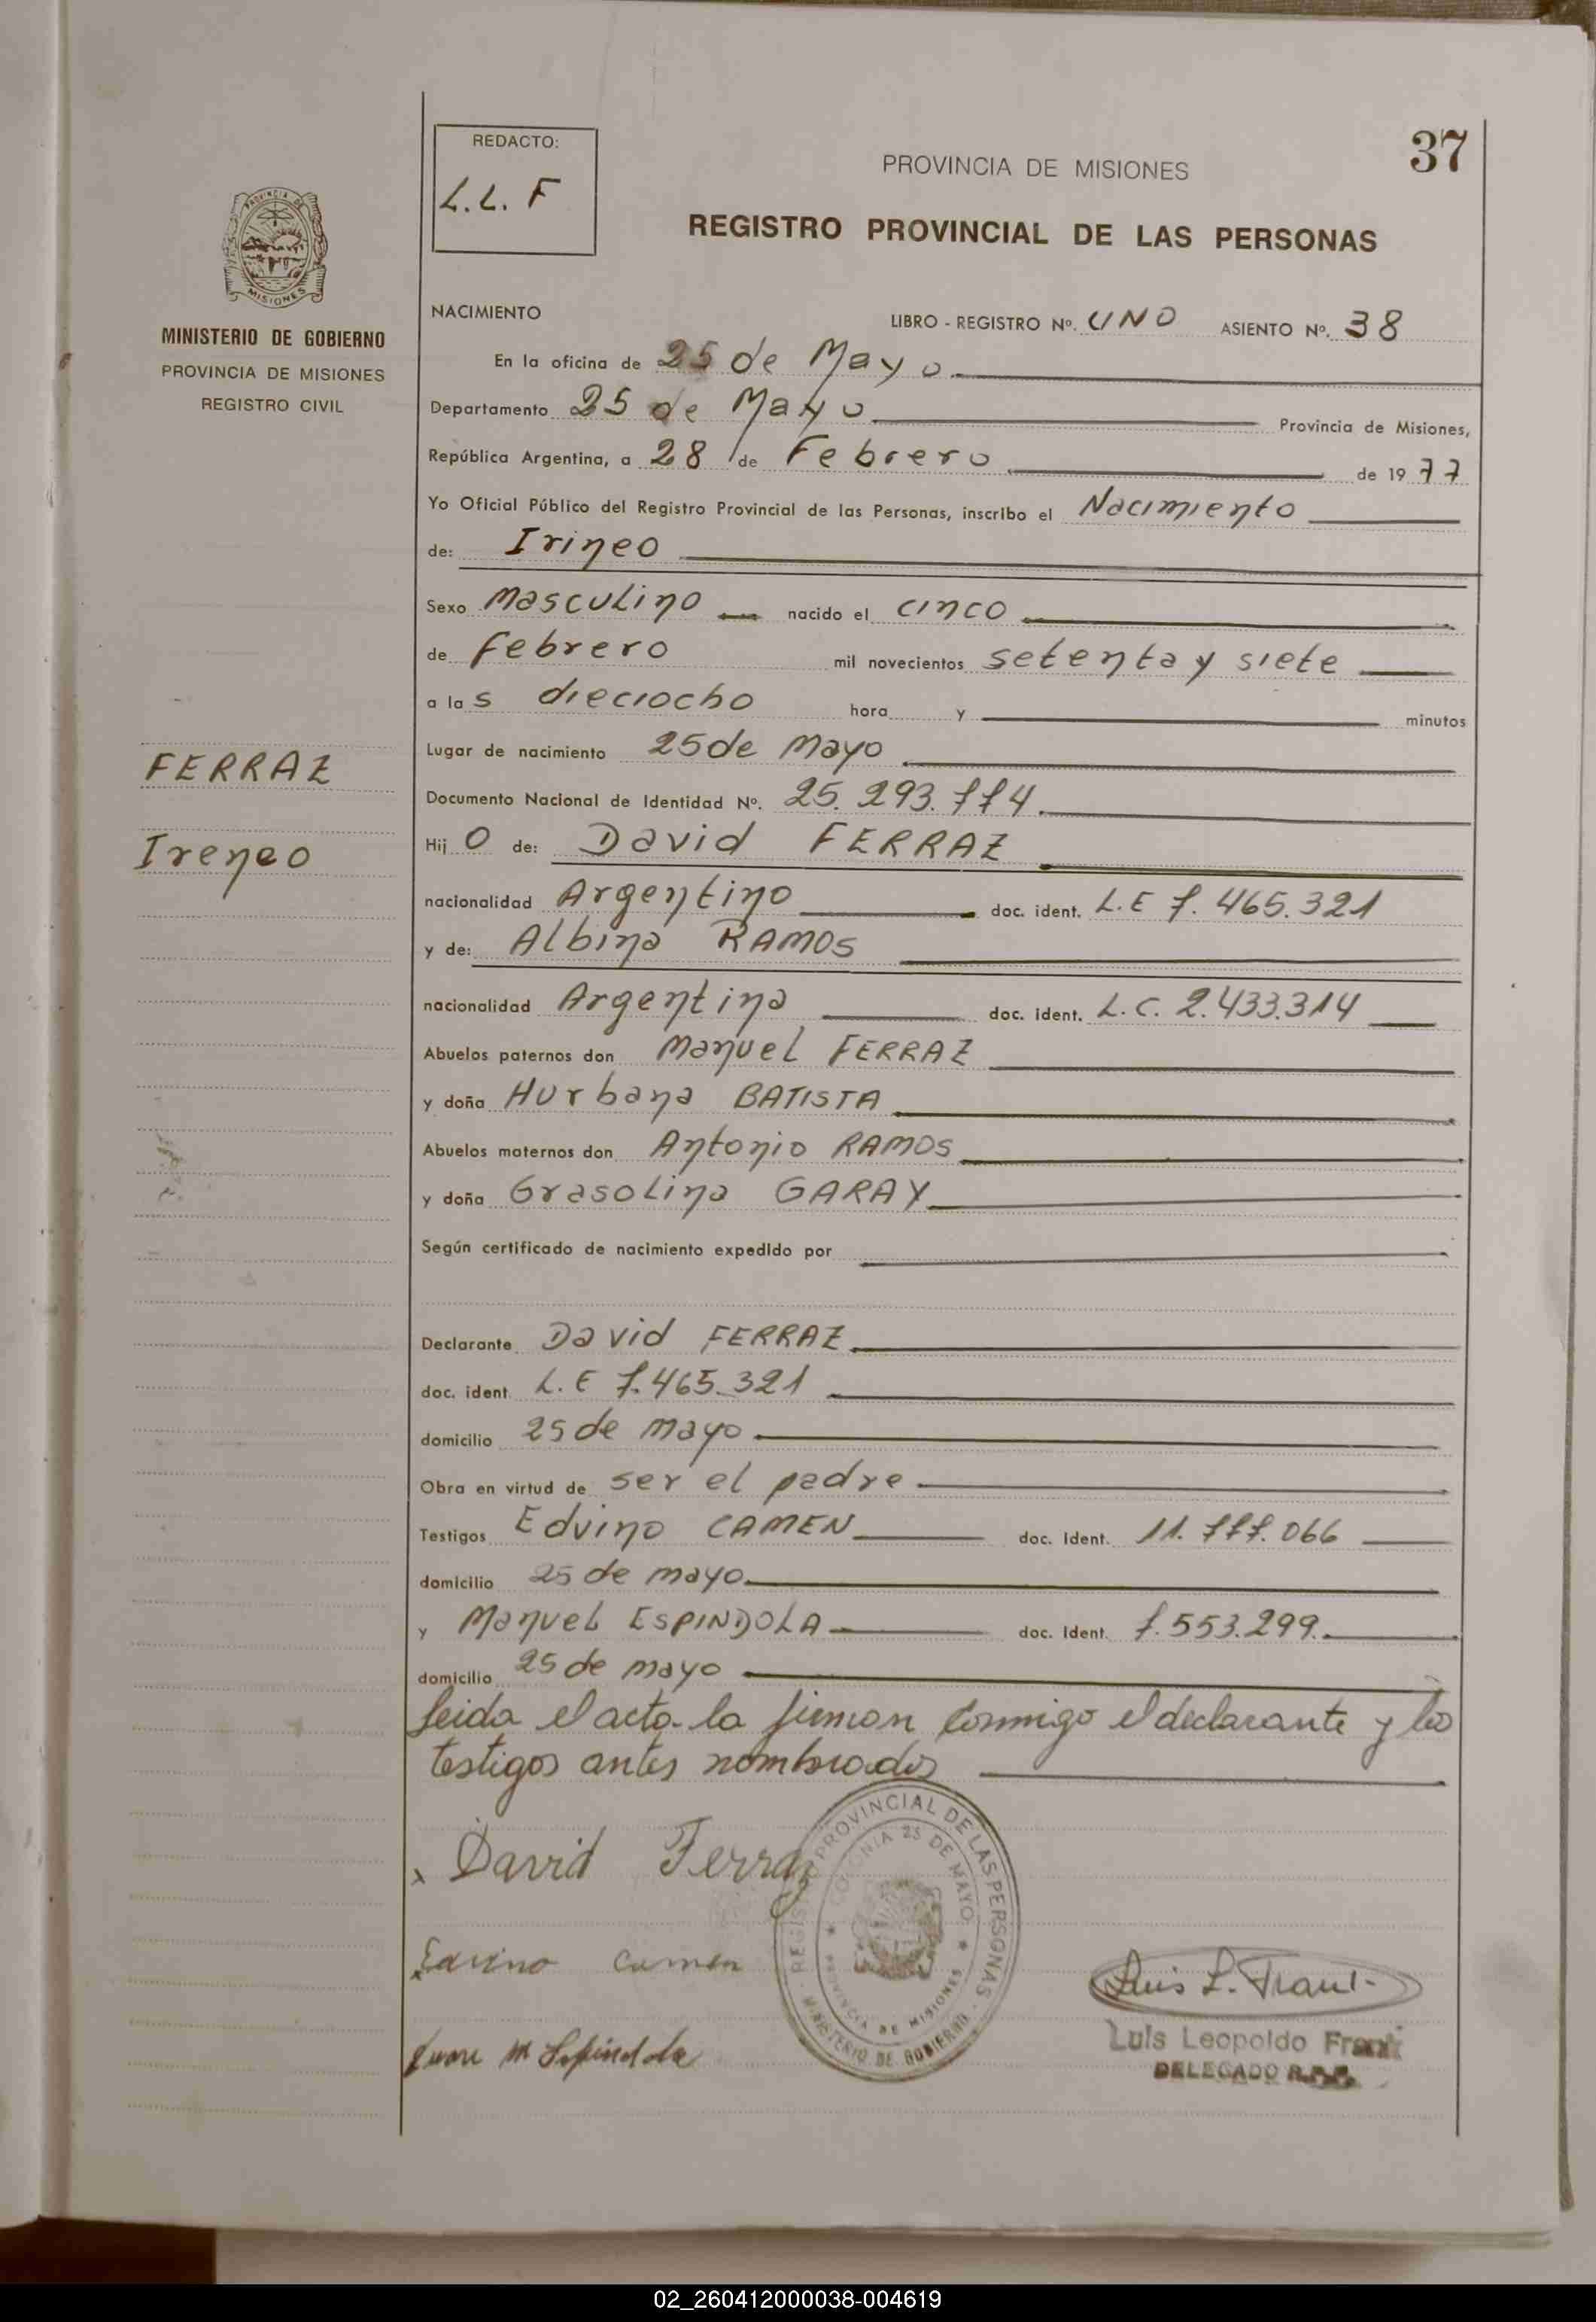 37
REDACTO:
L.L.F
PROVINCIA DE MISIONES
REGISTRO PROVINCIAL DE LAS PERSONAS
PROVINCIA DE
MISIONES
MINISTERIO DE GOBIERNO
PROVINCIA DE MISIONES
REGISTRO CIVIL
FERRAZ
Ireneo
NACIMIENTO LIBRO - REGISTRO Nº. UNO ASIENTO Nº. 38
En la oficina de 25 de Mayo
Departamento 25 de Mayo Provincia de Misiones,
República Argentina, a 28 de Febrero de 1977
Yo Oficial Público del Registro Provincial de las Personas, inscribo el Nacimiento
de: Irineo
Sexo Masculino nacido el cinco
de Febrero mil novecientos setenta y siete
a las dieciocho hora y minutos
Lugar de nacimiento 25 de Mayo
Documento Nacional de Identidad Nº. 25.293.774
Hijo de: David FERRAZ
nacionalidad Argentino doc. ident. L.E 7.465.321
y de: Albina RAMOS
nacionalidad Argentina doc. ident. L.C. 2.433.314
Abuelos paternos don Manuel FERRAZ
y doña Hurbana BATISTA
Abuelos maternos don Antonio RAMOS
y doña Grasolina GARAY
Según certificado de nacimiento expedido por
Declarante David FERRAZ
doc. ident. L.E 7.465.321
domicilio 25 de mayo
Obra en virtud de ser el padre
Testigos Edvino CAMEN doc. Ident. 11.777.066
domicilio 25 de mayo
y Manuel ESPINDOLA doc. Ident. 7.553.299
domicilio 25 de mayo
leida el acta la firman conmigo el declarante y los
testigos antes nombrados
David Ferraz
Edvino Camen
REGISTRO PROVINCIAL DE LAS PERSONAS
COLONIA 25 DE MAYO
PROVINCIA DE MISIONES
MINISTERIO DE GOBIERNO
Luis L.
Luis Leopoldo
DELEGADO
02_260412000038-004619